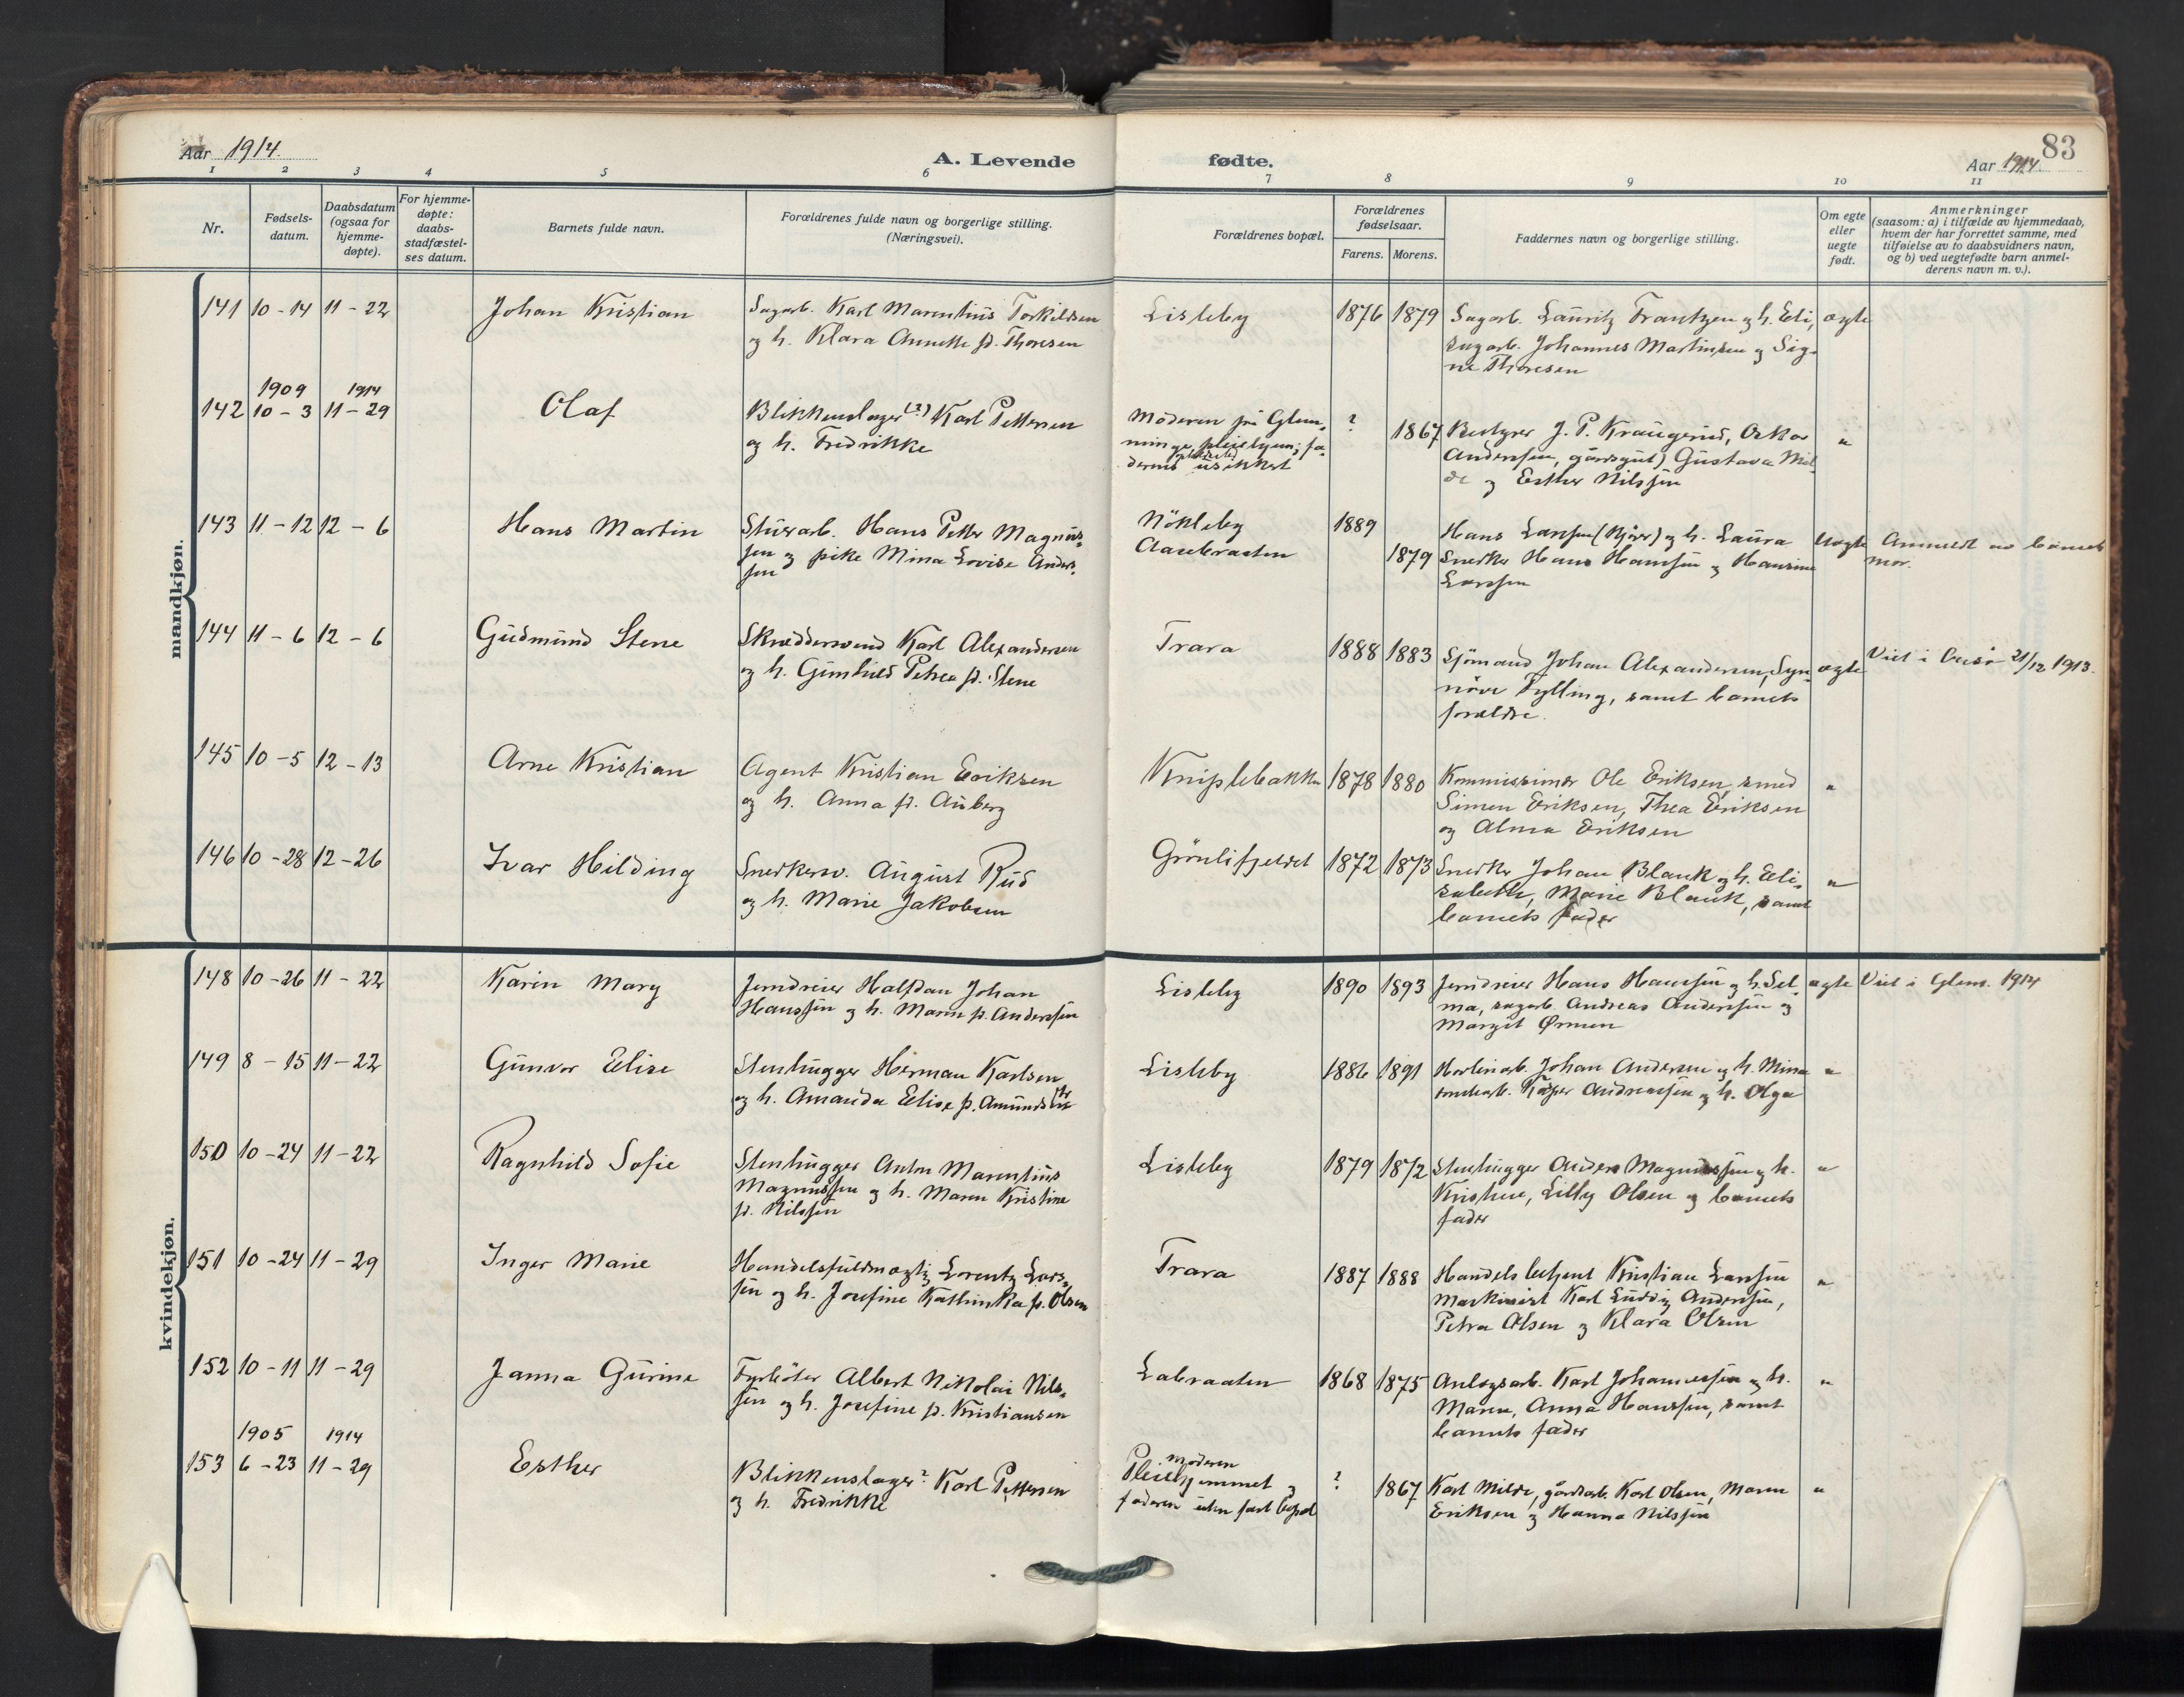 Aar 1914.
A. Levende
fødte.
Aar 1914.
83
1 2 3 4 5 6 7 8 9 10 11
Nr.
Fødsels-
datum.
Daabsdatum
(ogsaa for
hjemme-
døpte).
For hjemme-
døpte:
daabs-
stadfæstel-
ses datum.
Barnets fulde navn.
Forældrenes fulde navn og borgerlige stilling.
(Næringsvei).
Forældrenes bopæl.
Forældrenes
fødselsaar.
Farens. Morens.
Faddernes navn og borgerlige stilling.
Om egte
eller
uegte
født.
Anmerkninger
(saasom: a) i tilfælde av hjemmedaab,
hvem der har forrettet samme, med
tilføielse av to daabsvidners navn,
og b) ved uegtefødte barn anmel-
derens navn m. v.).
mandkjøn.
141 10 - 14 11 - 22 Johan Kristian Sagarb. Karl Marentius Torkildsen Lisleby 1876 1879 Sagarb. Lauritz Frantzen og h. Eli, ægte
og h. Klara Annette f. Thoresen sagarb. Johannes Martinsen og Sig-
ne Thoresen
1909 1914
142 10 - 3 11 - 29 Olaf Blikkenslager (?) Karl Pettersen Moderen på Glem- ? 1867 Bestyrer J. P. Kraugerud, Oskar "
og h. Fredrikke minge pleiehjem; fa- Anderssen, gårdsgut) Gustava Mil-
derens opholdssted usikkert de og Esther Nilssen
143 11 - 12 12 - 6 Hans Martin Stuerarb. Hans Petter Magnus- Nökleby 1889 Hans Larssen (Kjörer) og h. Laura Uegte Anmeldt av barnets
sen og pike Mina Lovise Anders- Aaebraaten 1879 Snedker Hans Hanssen og Hansine mor.
sen Larssen
144 11 - 6 12 - 6 Gudmund Stene Skræddersvend Karl Alexandersen Trara 1888 1883 Sjömand Johan Alexandersen, Syn- ægte Viet i 21/12 1913.
og h. Gunhild Petrea f. Stene növe Fylling, samt barnets
forældre.
145 10 - 5 12 - 13 Arne Kristian Agent Kristian Eriksen Kniplebakke 1878 1880 Kommissionær Ole Eriksen, smed "
og h. Anna f. Auberg Simen Eriksen, Thea Eriksen
og Alma Eriksen
146 10 - 28 12 - 26 Ivar Hilding Snedkersv. August Rud Grönlifjeldet 1872 1873 Snedker Johan Blank og h. Eli- "
og h. Marie Jakobsen sabeth, Marie Blank, samt
barnets fader
kvindekjøn.
148 10 - 26 11 - 22 Karin Mary Jerndreier Halfdan Johan Lisleby 1890 1893 Jerndreier Hans Hanssen og h. Sel- ægte Viet i Glem. 1914
Hanssen og h. Maren f. Anderssen ma, sagarb. Andreas Anderssen og
Margit Ørmen
149 8 - 15 11 - 22 Gunvor Elise Stenhugger Herman Karlsen Lisleby 1886 1891 Johan Andersen og h. Mina "
og h. Amanda Elise f. Amunds Andreassen og h. Olga
150 10 - 24 11 - 22 Ragnhild Sofie Stenhugger Anton Marentius Lisleby 1879 1872 Stenhugger Anders Magnussen og h. "
Magnussen og h. Maren Kristine Kristine, Lilly Olsen og barnets
f. Nilssen fader
151 10 - 24 11 - 29 Inger Marie Handelsfuldmægtig Lorentz Lars- Trara 1887 1888 Handelsbetjent Kristian Larssen "
sen og h. Josefine Kathinka f. Olsen Maskinist Karl Ludvig Anderssen,
Petra Olsen og Klara Olsen
152 10 - 11 11 - 29 Janna Gurine Fyrböter Albert Nikolai Nils- Labraaten 1868 1875 Anlegsarb. Karl Johannessen og h. "
sen og h. Josefine f. Kristiansen Maren, Anna Hanssen, samt
barnets fader
1905 1914
153 6 - 23 11 - 29 Esther Blikkenslager ? Karl Pettersen moderen Pleiehjemmet og ? 1867 Karl Milde, gårdsarb. Karl Olsen, Maren "
og h. Fredrikke faderen uten fast bopæl Eriksen og Hanna Nilssen